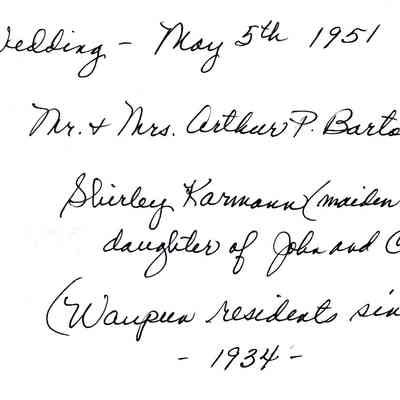 Wedding - May 5th 1951
Mr. & Mrs. Arthur P. Barto
Shirley Karmann (maiden
daughter of John and C
(Waupun residents sin
- 1934 -